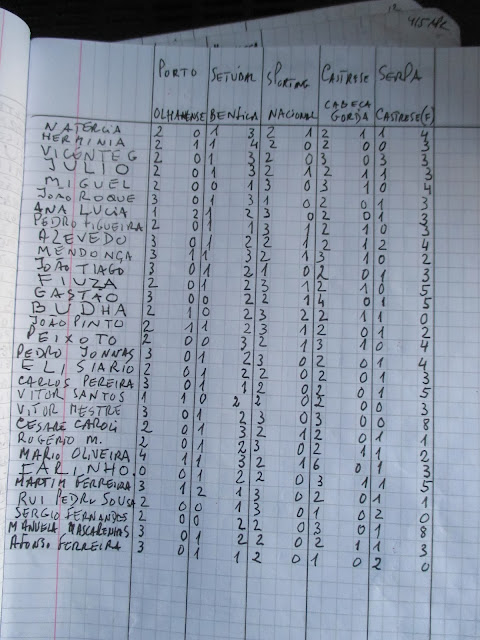 415/42
PORTO SETÚBAL SPORTING CASTRESE SERPA
OLHANENSE BENFICA NACIONAL CABEÇA GORDA CASTRASE(F)
NATERCIA 2 0 1 3 2 1 2 1 1 4
HERMINIA 2 1 1 4 2 0 2 0 0 3
VICENTE G 2 0 1 3 2 0 3 0 3 3
JULIO 2 0 1 3 2 1 2 1 1 3
MIGUEL 2 0 0 1 3 0 3 1 0 4
JOAO ROQUE 3 0 1 3 1 0 2 0 1 3
ANA LUCIA 1 2 1 2 3 0 2 0 1 3
PEDRO FIGUEIRA 2 0 1 1 3 1 2 1 0 3
AZEVEDO 3 0 1 2 2 1 2 1 2 4
MENDONÇA 3 1 1 3 2 1 3 1 0 2
JOÃO TIAGO 3 0 1 2 1 0 2 0 1 3
FIUZA 2 0 1 2 2 1 2 1 0 5
GASTÃO 3 0 0 2 2 1 4 0 1 5
BUDHA 2 1 0 2 3 2 2 1 1 0
JOAO PINTO 2 1 1 2 3 1 2 1 0 2
PEIXOTO 2 0 0 3 2 1 3 1 0 4
PEDRO JONNAS 3 0 1 2 3 0 2 0 1 4
ELISIARIO 2 0 1 2 2 0 2 0 1 3
CARLOS PEREIRA 3 0 1 1 2 0 2 0 1 5
VITOR SANTOS 1 1 0 2 2 0 2 0 0 3
VITOR MESTRE 3 0 1 2 3 0 3 0 0 8
CESARE CAROLI 2 0 1 3 2 1 2 1 1 1
ROGÉRIO M. 2 0 1 2 3 0 2 1 1 2
MARIO OLIVEIRA 4 1 1 3 2 1 6 0 1 3
FARINHO. 0 0 1 2 2 0 3 1 1 5
MARTIM FERREIRA 3 1 2 1 3 0 2 0 1 1
RUI PEDRO SOUSA 2 0 0 1 3 0 1 0 2 0
SERGIO FERNANDES 2 0 0 2 2 0 3 0 1 8
MANUELA MASCARENHAS 3 0 1 2 2 0 2 1 1 3
AFONSO FERREIRA 3 0 1 1 2 0 1 0 2 0